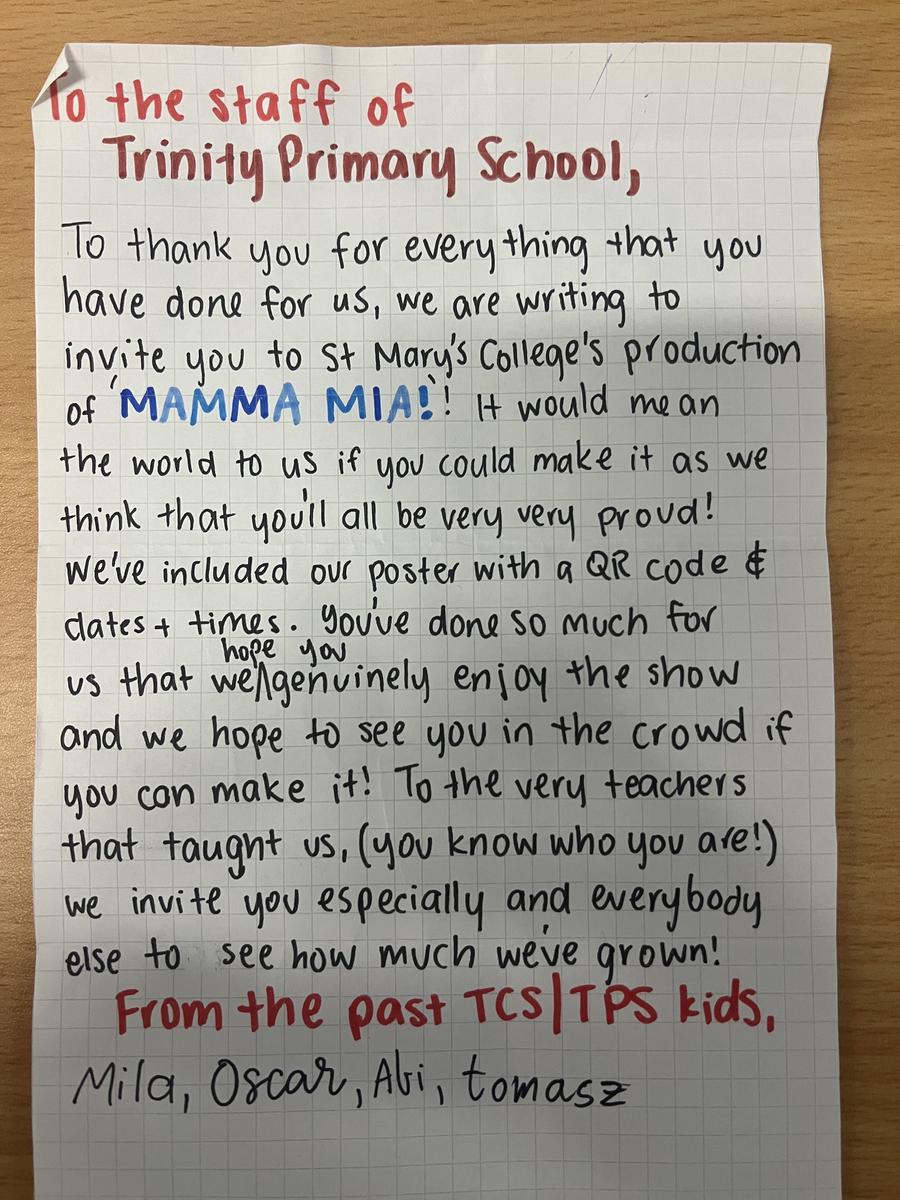 To the staff of
Trinity Primary School,
To thank you for everything that you
have done for us, we are writing to
invite you to St Mary's College's production
of 'MAMMA MIA!'! It would mean
the world to us if you could make it as we
think that you'll all be very very proud!
We've included our poster with a QR code &
dates + times. You've done so much for
hope you
us that we^genuinely enjoy the show
and we hope to see you in the crowd if
you can make it! To the very teachers
that taught us, (you know who you are!)
we invite you especially and everybody
else to see how much we've grown!
From the past TCS/TPS kids,
Mila, Oscar, Abi, tomasz